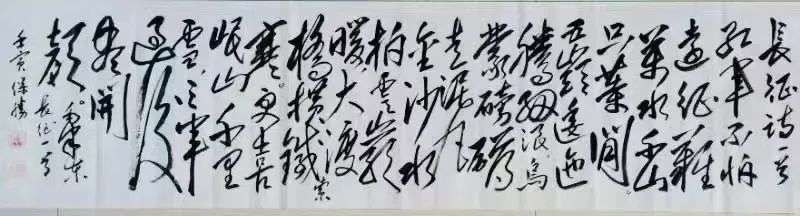 長征诗一首
红軍不怕
遠征難
萬水千山
只等闲
五嶺逶迤
腾细浪烏
蒙磅礴
走泥丸
金沙水
拍雲崖
暖大渡
橋横鐵索
寒更喜
岷山千里
雪三軍
過後
尽開
颜 毛泽东
長征一首
壬寅